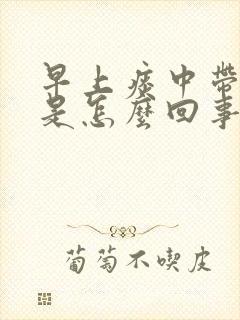 早上痰中帶
是怎麼回事
葡萄不喫皮